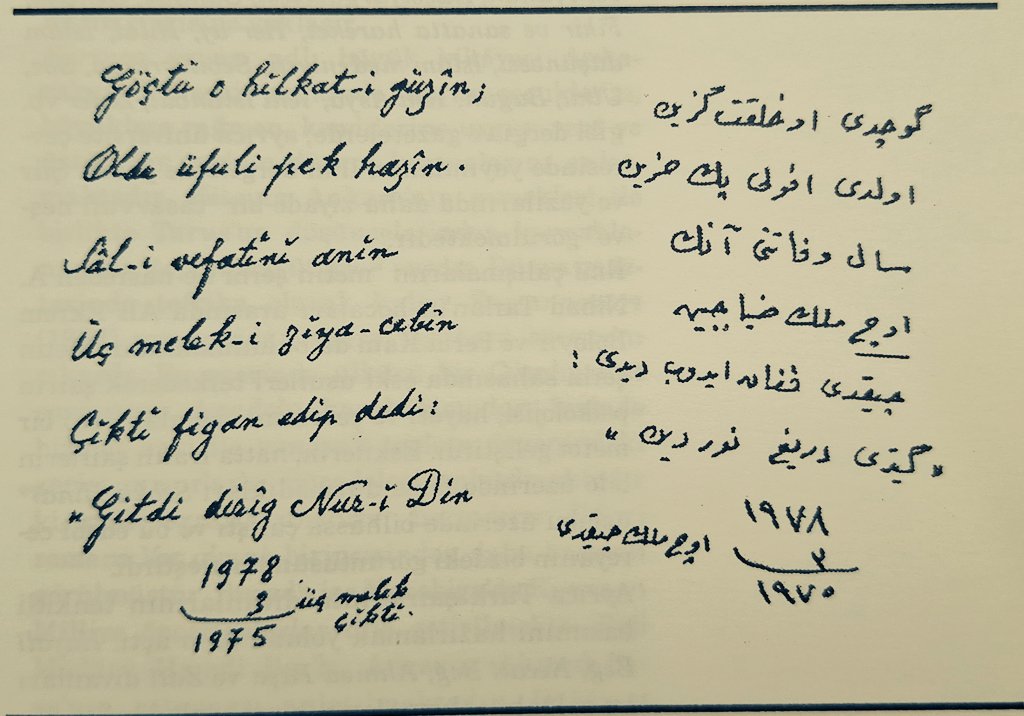 Göçtü o hilkat-i güzîn;
Oldu üfuli pek hazîn.
Sâl-i vefatini anin
Üç melek-i ziya-cebîn
Çikti figan edip dedi:
"Gitdi dirîg Nur-i Din
1978
3 üç melek çikti.
1975
گوچدی او خلقت گزین
اولدی افولی پك حزین
سال وفاتنی آنك
اوچ ملك ضیا جبین
چیقدی فغان ایدوب دیدی :
"گیتدی دریغ نور دین"
۱۹۷۸
۳ اوچ ملك چیقدی
۱۹۷۵